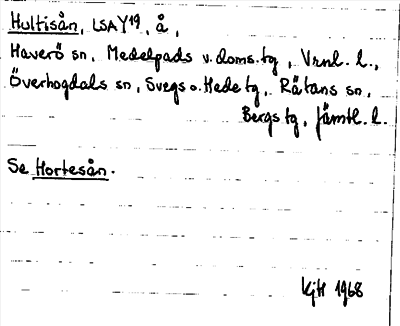 Hultisån, LSA Y19, å,
Haverö sn, Medelpads v. doms. tg, Vrnl. l.,
Överhogdals sn, Svegs o. Hede tg, Rätans sn,
Bergs tg, Jämtl. l.
Se Hortesån.
KjH 1968